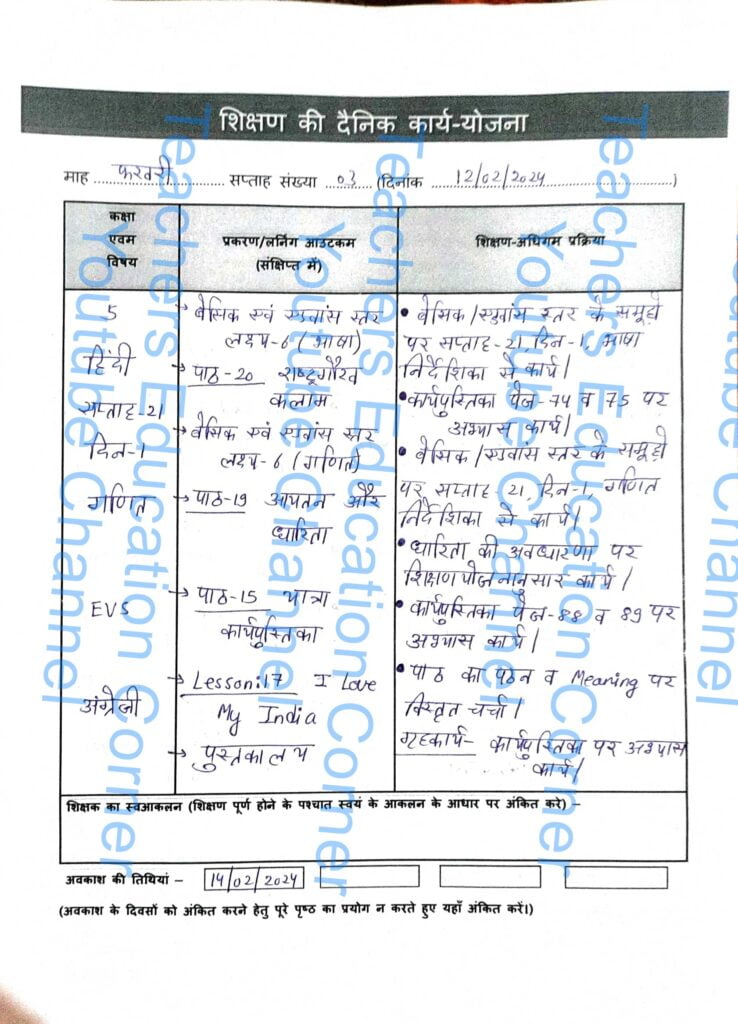 शिक्षण की दैनिक कार्य-योजना
माह फरवरी सप्ताह संख्या 03 (दिनांक 12/02/2024)
कक्षा
एवम
विषय
प्रकरण/लर्निंग आउटकम
(संक्षिप्त में)
शिक्षण-अधिगम प्रक्रिया
5
हिंदी
सप्ताह-21
दिन-1
गणित
EVS
अंग्रेजी
→ बेसिक एवं एडवांस स्तर
लक्ष्य-6 (भाषा)
→ पाठ-20 राष्ट्रगौरव
कलाम
→ बेसिक एवं एडवांस स्तर
लक्ष्य-6 (गणित)
→ पाठ-19 आयतन और
धारिता
→ पाठ-15 यात्रा
कार्यपुस्तिका
→ Lesson:17 I Love
My India
→ पुस्तकालय
• बेसिक/एडवांस स्तर के समूहो
पर सप्ताह-21, दिन-1, भाषा
निर्देशिका से कार्य।
• कार्यपुस्तिका पेज-74 व 75 पर
अभ्यास कार्य।
• बेसिक/एडवांस स्तर के समूहो
पर सप्ताह-21, दिन-1, गणित
निर्देशिका से कार्य।
• धारिता की अवधारणा पर
शिक्षण योजनानुसार कार्य।
• कार्यपुस्तिका पेज-88 व 89 पर
अभ्यास कार्य।
• पाठ का पठन व Meaning पर
विस्तृत चर्चा।
गृहकार्य- कार्यपुस्तिका पर अभ्यास
कार्य।
शिक्षक का स्वआकलन (शिक्षण पूर्ण होने के पश्चात स्वयं के आकलन के आधार पर अंकित करे) –
अवकाश की तिथियां – 14/02/2024
(अवकाश के दिवसों को अंकित करने हेतु पूरे पृष्ठ का प्रयोग न करते हुए यहाँ अंकित करें।)
Teachers Education Corner
Youtube Channel
Teachers Education Corner
Youtube Channel
Teachers Education Corner
Youtube Channel